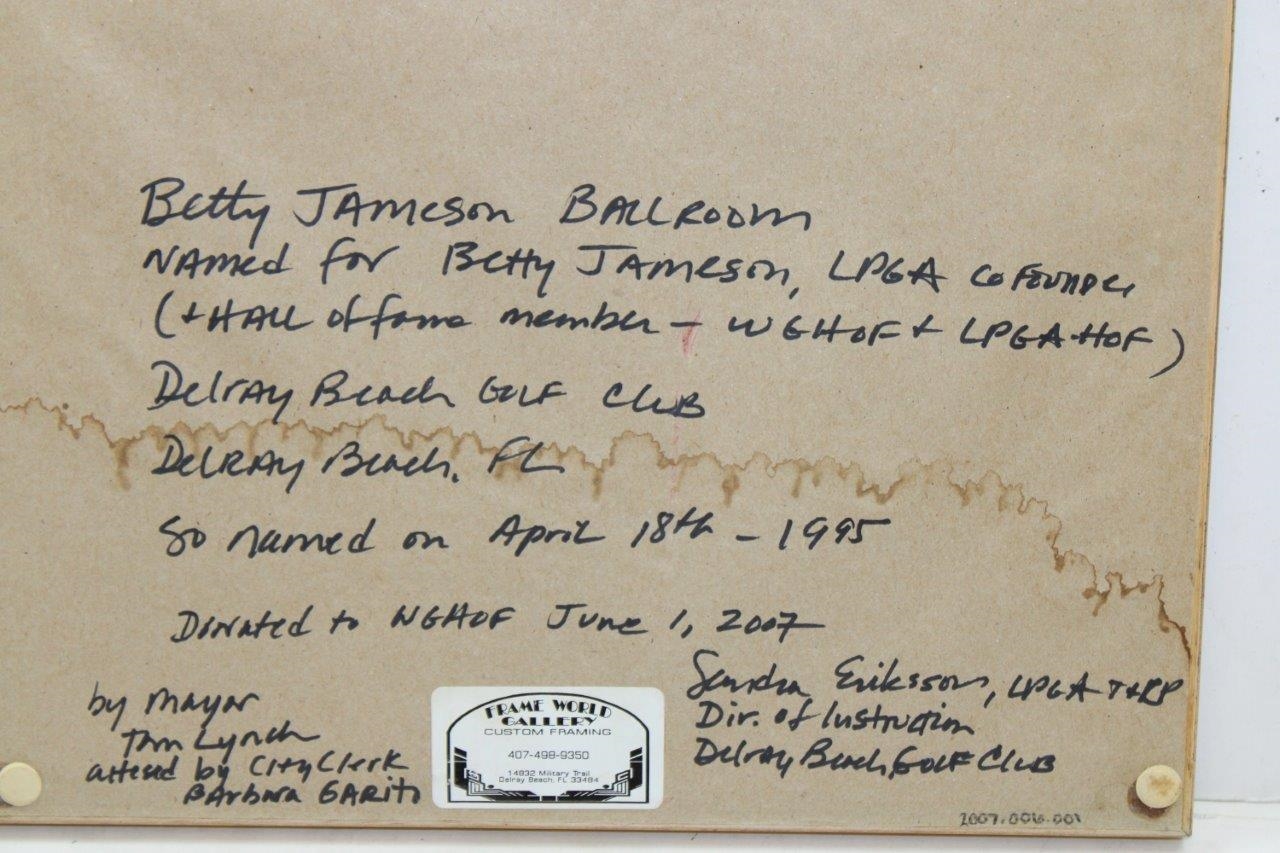 Betty Jameson Ballroom
Named for Betty Jameson, LPGA cofounder
(+ Hall of fame member - WGHOF + LPGA HOF)
Delray Beach Golf Club
Delray Beach, FL
So named on April 18th - 1995
Donated to WGHOF June 1, 2007
by Mayor
Tom Lynch
attesed by City Clerk
Barbara Garito
FRAME WORLD
GALLERY
CUSTOM FRAMING
407-498-9350
14832 Military Trail
Delray Beach, FL 33484
Sandra Eriksson, LPGA T+RP
Dir. of Instruction
Delray Beach Golf Club
2007.006.001